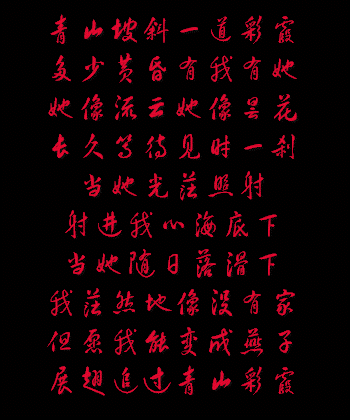 青山坡斜一道彩霞
多少黄昏有我有她
她像流云她像昙花
长久等待见时一刹
当她光茫照射
射进我心海底下
当她随日落滑下
我茫然地像没有家
但愿我能变成燕子
展翅追过青山彩霞